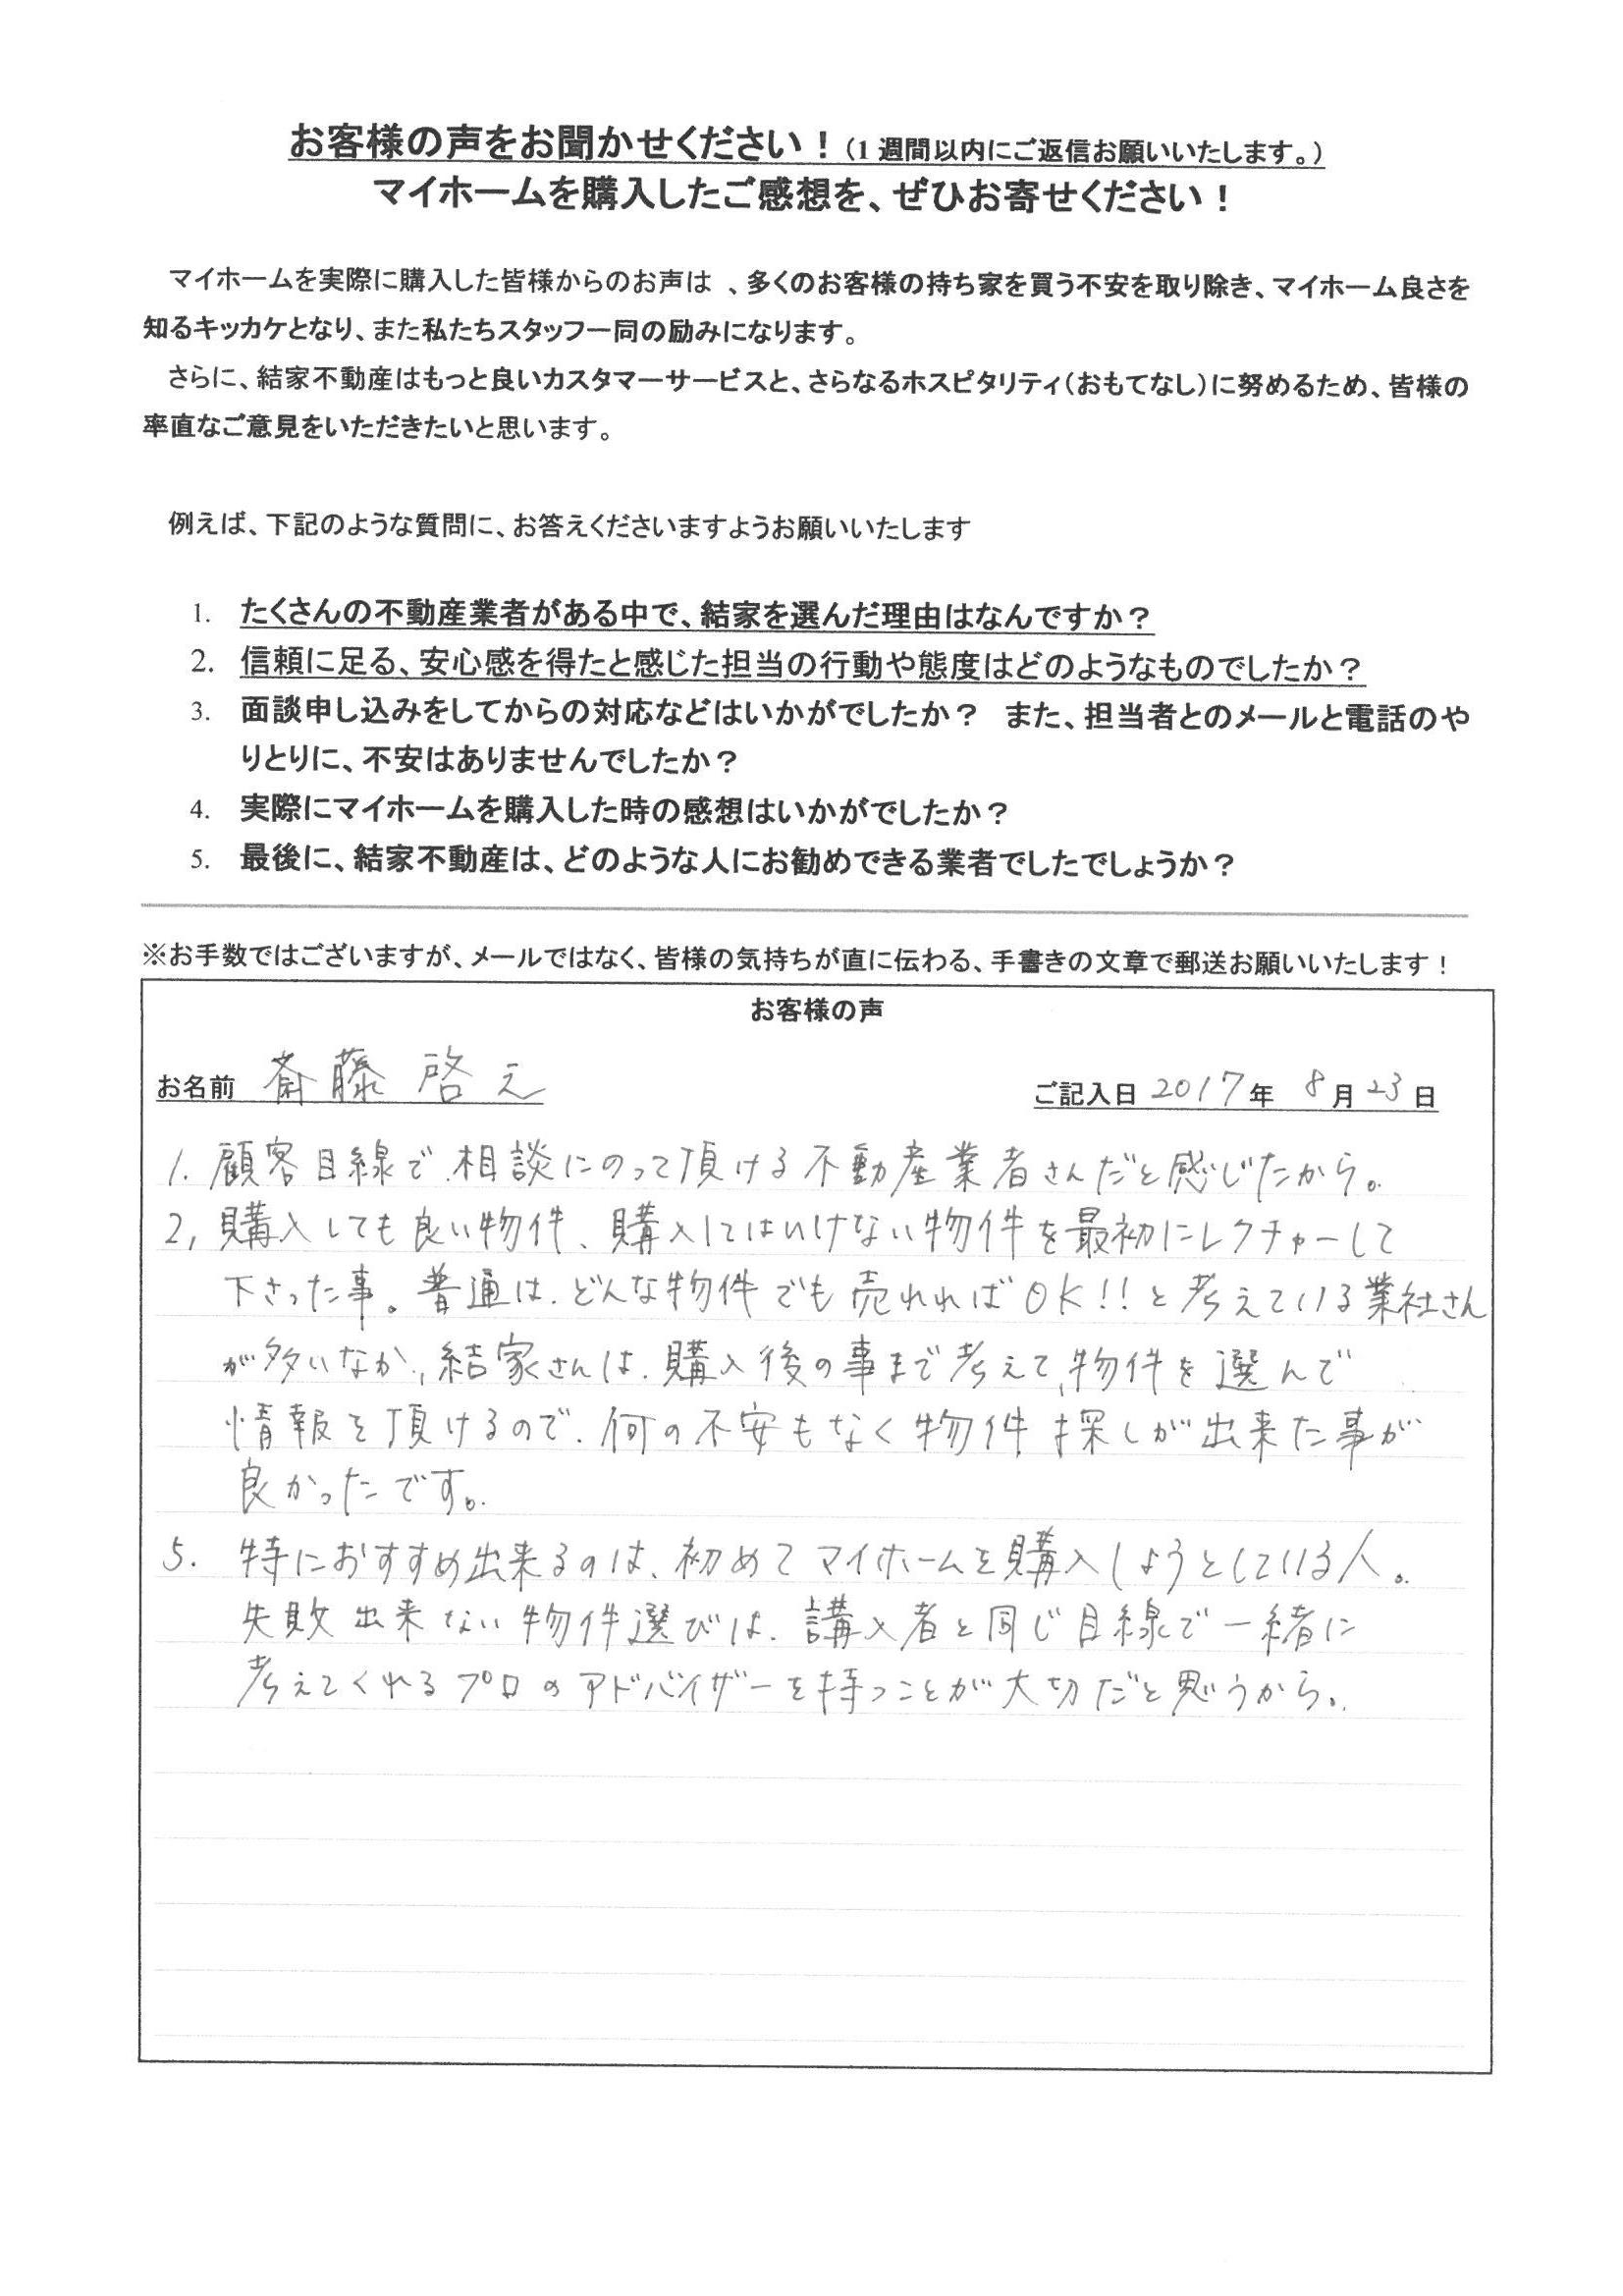 お客様の声をお聞かせください！（1 週間以内にご返信お願いいたします。）
マイホームを購入したご感想を、ぜひお寄せください！
マイホームを実際に購入した皆様からのお声は 、多くのお客様の持ち家を買う不安を取り除き、マイホーム良さを
知るキッカケとなり、また私たちスタッフ一同の励みになります。
さらに、結家不動産はもっと良いカスタマーサービスと、さらなるホスピタリティ（おもてなし）に努めるため、皆様の
率直なご意見をいただきたいと思います。
例えば、下記のような質問に、お答えくださいますようお願いいたします
1. たくさんの不動産業者がある中で、結家を選んだ理由はなんですか？
2. 信頼に足る、安心感を得たと感じた担当の行動や態度はどのようなものでしたか？
3. 面談申し込みをしてからの対応などはいかがでしたか？ また、担当者とのメールと電話のや
りとりに、不安はありませんでしたか？
4. 実際にマイホームを購入した時の感想はいかがでしたか？
5. 最後に、結家不動産は、どのような人にお勧めできる業者でしたでしょうか？
※お手数ではございますが、メールではなく、皆様の気持ちが直に伝わる、手書きの文章で郵送お願いいたします！
お客様の声
お名前 斎藤 啓え ご記入日 2017年 8月23日
1. 顧客目線で、相談にのって頂ける不動産業者さんだと感じたから。
2, 購入しても良い物件、購入してはいけない物件を最初にレクチャーして
下さった事。普通は、どんな物件でも売れればOK!!と考えている業社さん
が多いなか、結家さんは、購入後の事まで考えて、物件を選んで
情報を頂けるので、何の不安もなく物件探しが出来た事が
良かったです。
5. 特におすすめ出来るのは、初めてマイホームを購入しようとしている人。
失敗出来ない物件選びは、講入者と同じ目線で一緒に
考えてくれるプロのアドバイザーを持つことが大切だと思うから。